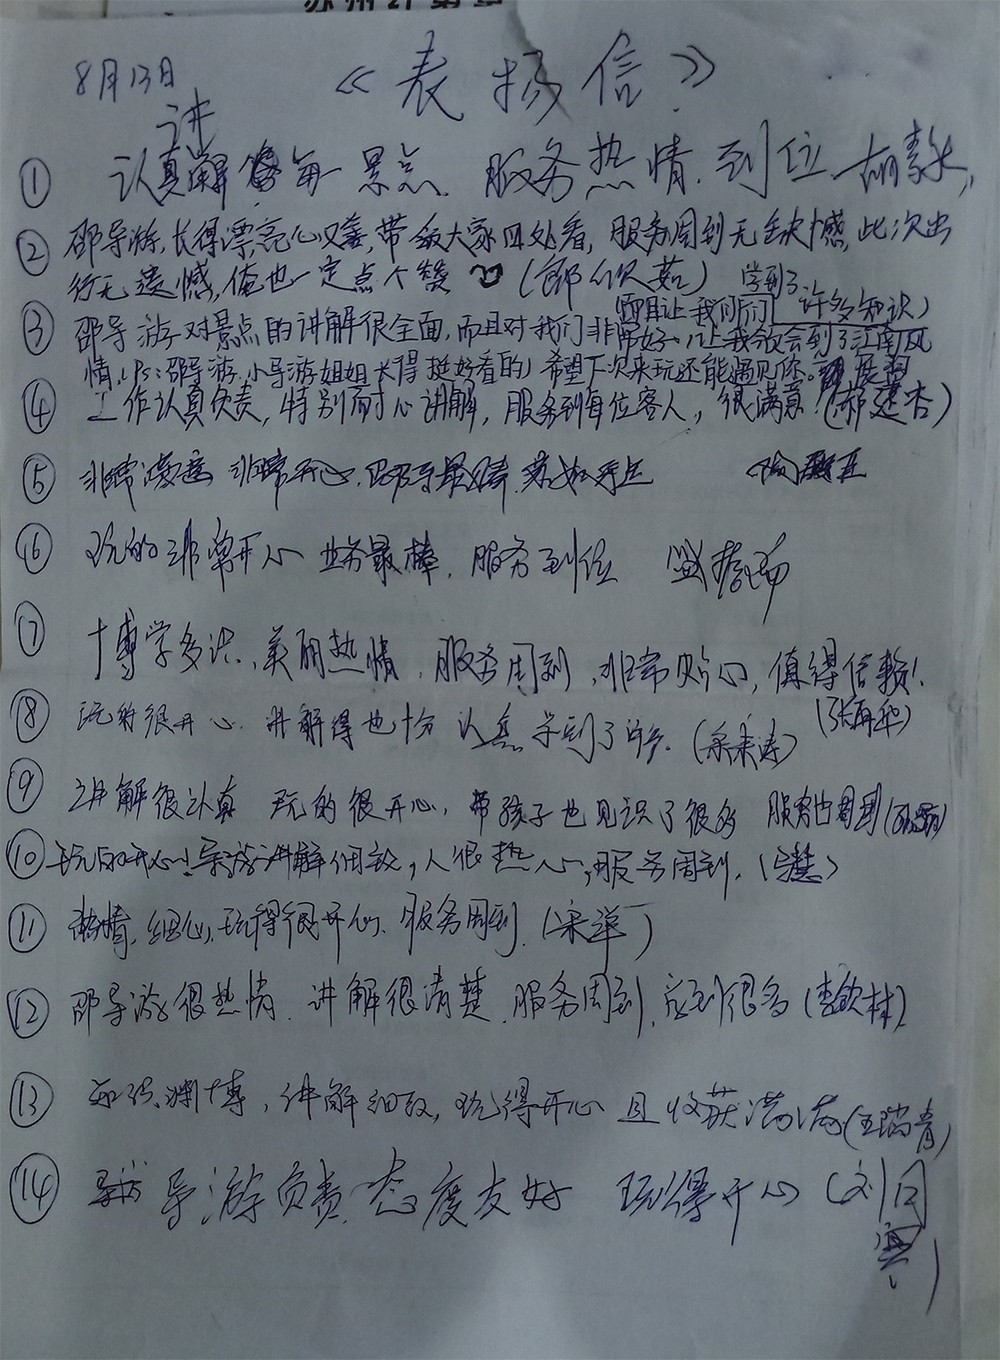 8月13日
《表扬信》
① 认真讲解每一景点.服务热情.到位
② 邵导游,长得漂亮心又善,带领大家四处看,服务周到无缺憾,此次出
行无遗憾,俺也一定点个赞
学到了
而且让我们 许多知识)
③ 邵导游对景点的讲解很全面,而且对我们非常好,让我领会到了江南风
情,(Ps:邵导游,小导游姐姐长得挺好看的)希望下次来玩还能遇见你。
④ 工作认真负责,特别耐心讲解,服务到每位客人,很满意!(郝建杏)
⑤ 非常满意 非常开心.邵导最棒
⑥ 玩的非常开心 业务最棒.服务到位
⑦ 博学多识、美丽热情,服务周到,非常贴心,值得信赖!
⑧ 玩的很开心.讲解得也十分认真 学到了许多.
⑨ 讲解很认真 玩的很开心,带孩子也见识了很多 服务也周到
⑩ 玩的开心!导游讲解细致,人很热心,服务周到.
⑪ 热情,细心,玩得很开心.服务周到.
⑫ 邵导游很热情.讲解很清楚.服务周到.
⑬ 知识渊博,讲解细致,玩得开心且收获满满(王瑞青)
⑭ 导游负责.态度友好 玩得开心